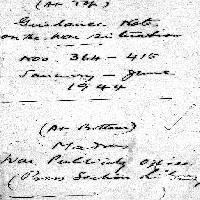 (At Top)
Guidance Note
on the War Situation
Nos. 364 - 415
January - June
1944
(At Bottom)
War Publicity Office
(Press Section